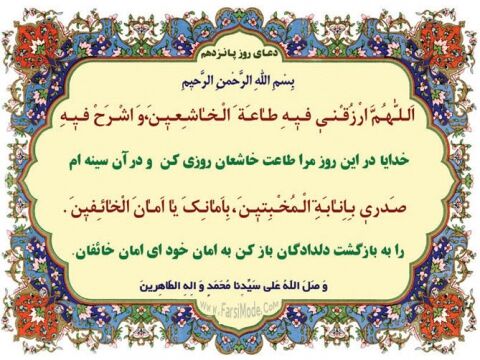 دعای روز پانزدهم
بِسْمِ اللهِ الرَّحْمنِ الرَّحیمِ
اَللّهُمَّ ارْزُقْنی فیهِ طاعَةَ الْخاشِعینَ،وَ اشْرَحْ فیهِ
خدایا در این روز مرا طاعت خاشعان روزی کن و در آن سینه ام
صَدری بِاِنابَةِ الْمُخْبِتینَ،بِاَمانِکَ یا اَمانَ الْخائِفینَ.
را به بازگشت دلدادگان باز کن به امان خود ای امان خائفان.
وَ صَلَ اللهُ عَلی سَیِّدِنا مُحَمَدِ وَ الِهِ الطّاهِرینَ
FarsiMode.Com